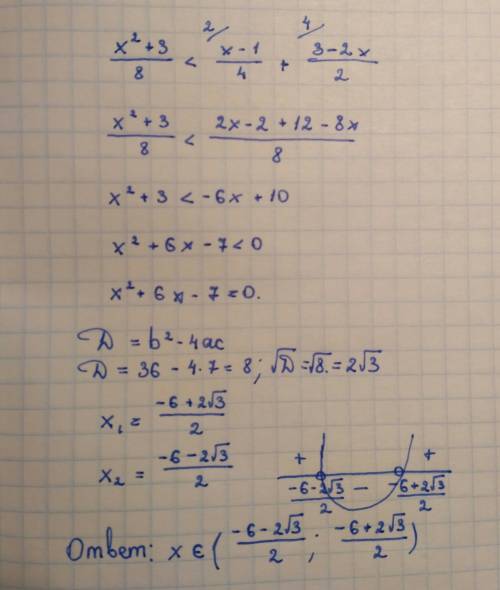 (x² + 3)/8 < ²/ (x - 1)/4 + ⁴/ (3 - 2x)/2
(x² + 3)/8 < (2x - 2 + 12 - 8x)/8
x² + 3 < -6x + 10
x² + 6x - 7 < 0
x² + 6x - 7 = 0.
D = b² - 4ac
D = 36 - 4·7 = 8; √D = √8. = 2√3
x₁ = (-6 + 2√3)/2
x₂ = (-6 - 2√3)/2
+ +
(-6 - 2√3)/2 − (-6 + 2√3)/2
Ответ: x ∈ ((-6 - 2√3)/2; (-6 + 2√3)/2)